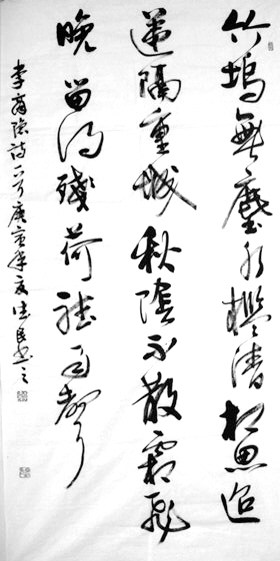 竹塢無塵水檻清相思迢
遞隔重城秋陰不散霜飛
晚留得殘荷聽雨聲
李商隱詩一首庚寅年夏